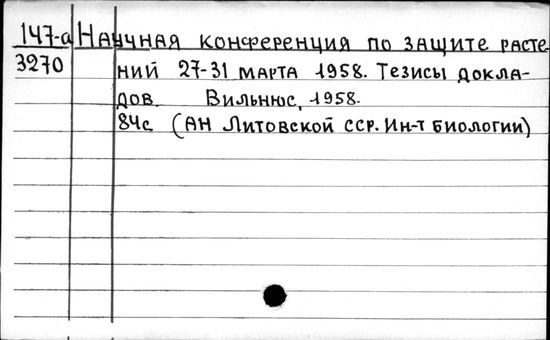 147-а Научная конференция по защите расте-
3270 ний 27-31 марта 1958. Тезисы докла-
дов. Вильнюс, 1958.
84с (АН Литовской ССР. Ин-т биологии)